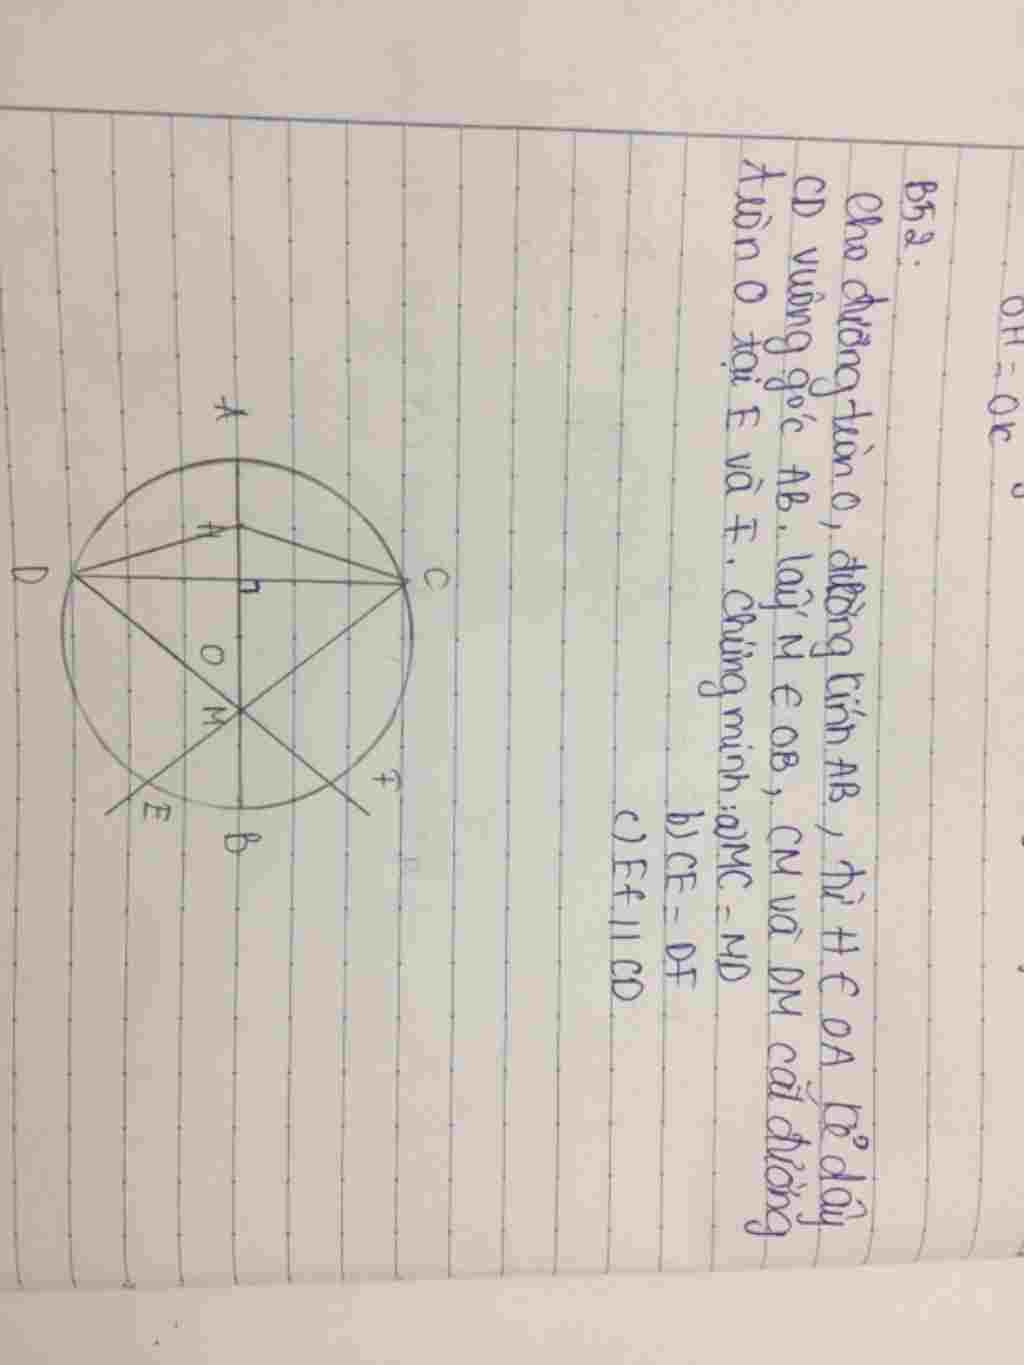 OH = OK
Bài 2.
Cho đường tròn O, đường kính AB, từ H ∈ OA kẻ dây
CD vuông góc AB. lấy M ∈ OB, CM và DM cắt đường
tròn O tại E và F. Chứng minh: a) MC = MD
b) CE = DF
c) EF // CD
C
A
H
O
M
B
F
E
D